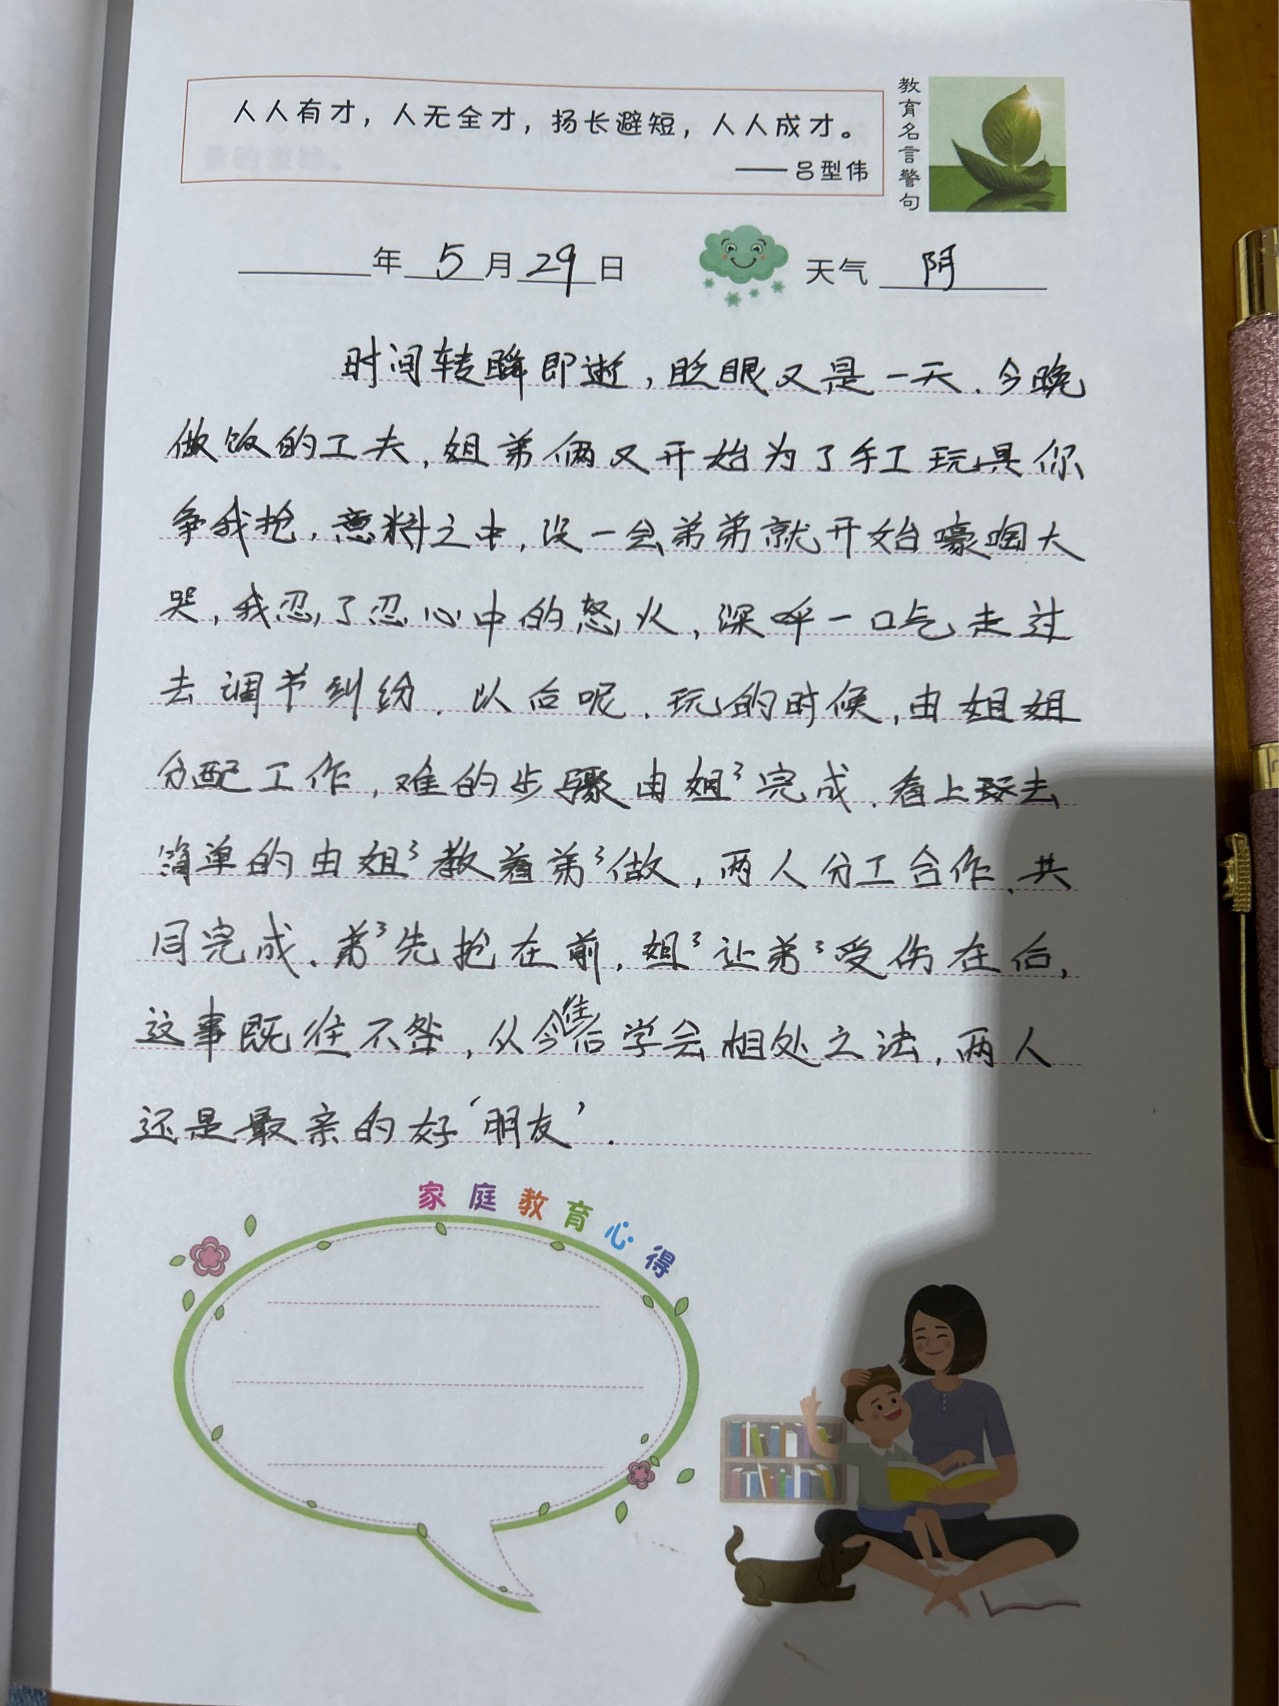 人人有才，人无全才，扬长避短，人人成才。
——吕型伟
教育名言警句
年 5 月 29 日 天气 阴
时间转瞬即逝，眨眼又是一天．今晚
做饭的工夫，姐弟俩又开始为了手工玩具你
争我抢，意料之中，没一会弟弟就开始嚎啕大
哭，我忍了忍心中的怒火，深呼一口气走过
去调节纠纷．以后呢．玩的时候，由姐姐
分配工作，难的步骤由姐ʒ完成．看上去
简单的由姐ʒ教着弟ʒ做，两人分工合作．共
同完成．弟ʒ先抢在前，姐ʒ让弟ʒ受伤在后，
这事既往不咎，从今往后学会相处之法，两人
还是最亲的好‘朋友’．
家庭教育心得